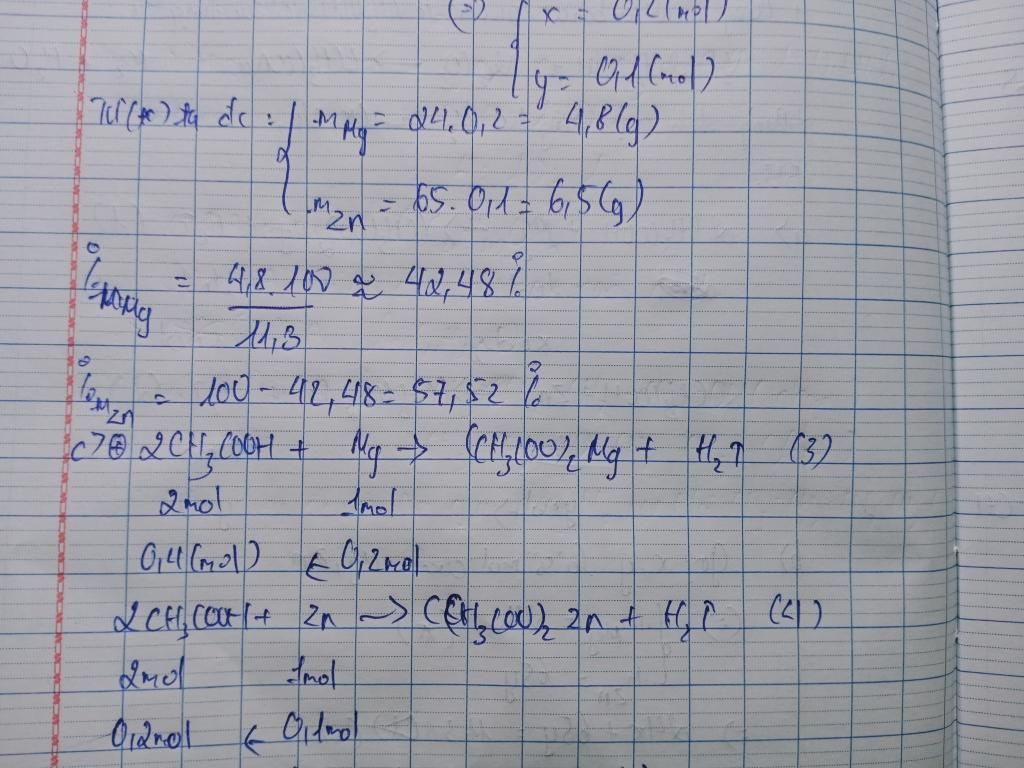 (=) { x = 0,2 (mol)
y = 0,1 (mol)
Từ (*) ta đc : { mMg = 24.0,2 = 4,8 (g)
mZn = 65.0,1 = 6,5 (g)
%mMg = 4,8.100 / 11,3 ≈ 42,48%
%mZn = 100 - 42,48 = 57,52%
c) ⊕ 2CH3COOH + Mg → (CH3COO)2Mg + H2↑ (3)
2mol 1mol
0,4 (mol) ← 0,2mol
2CH3COOH + Zn → (CH3COO)2Zn + H2↑ (4)
2mol 1mol
0,2mol ← 0,1mol